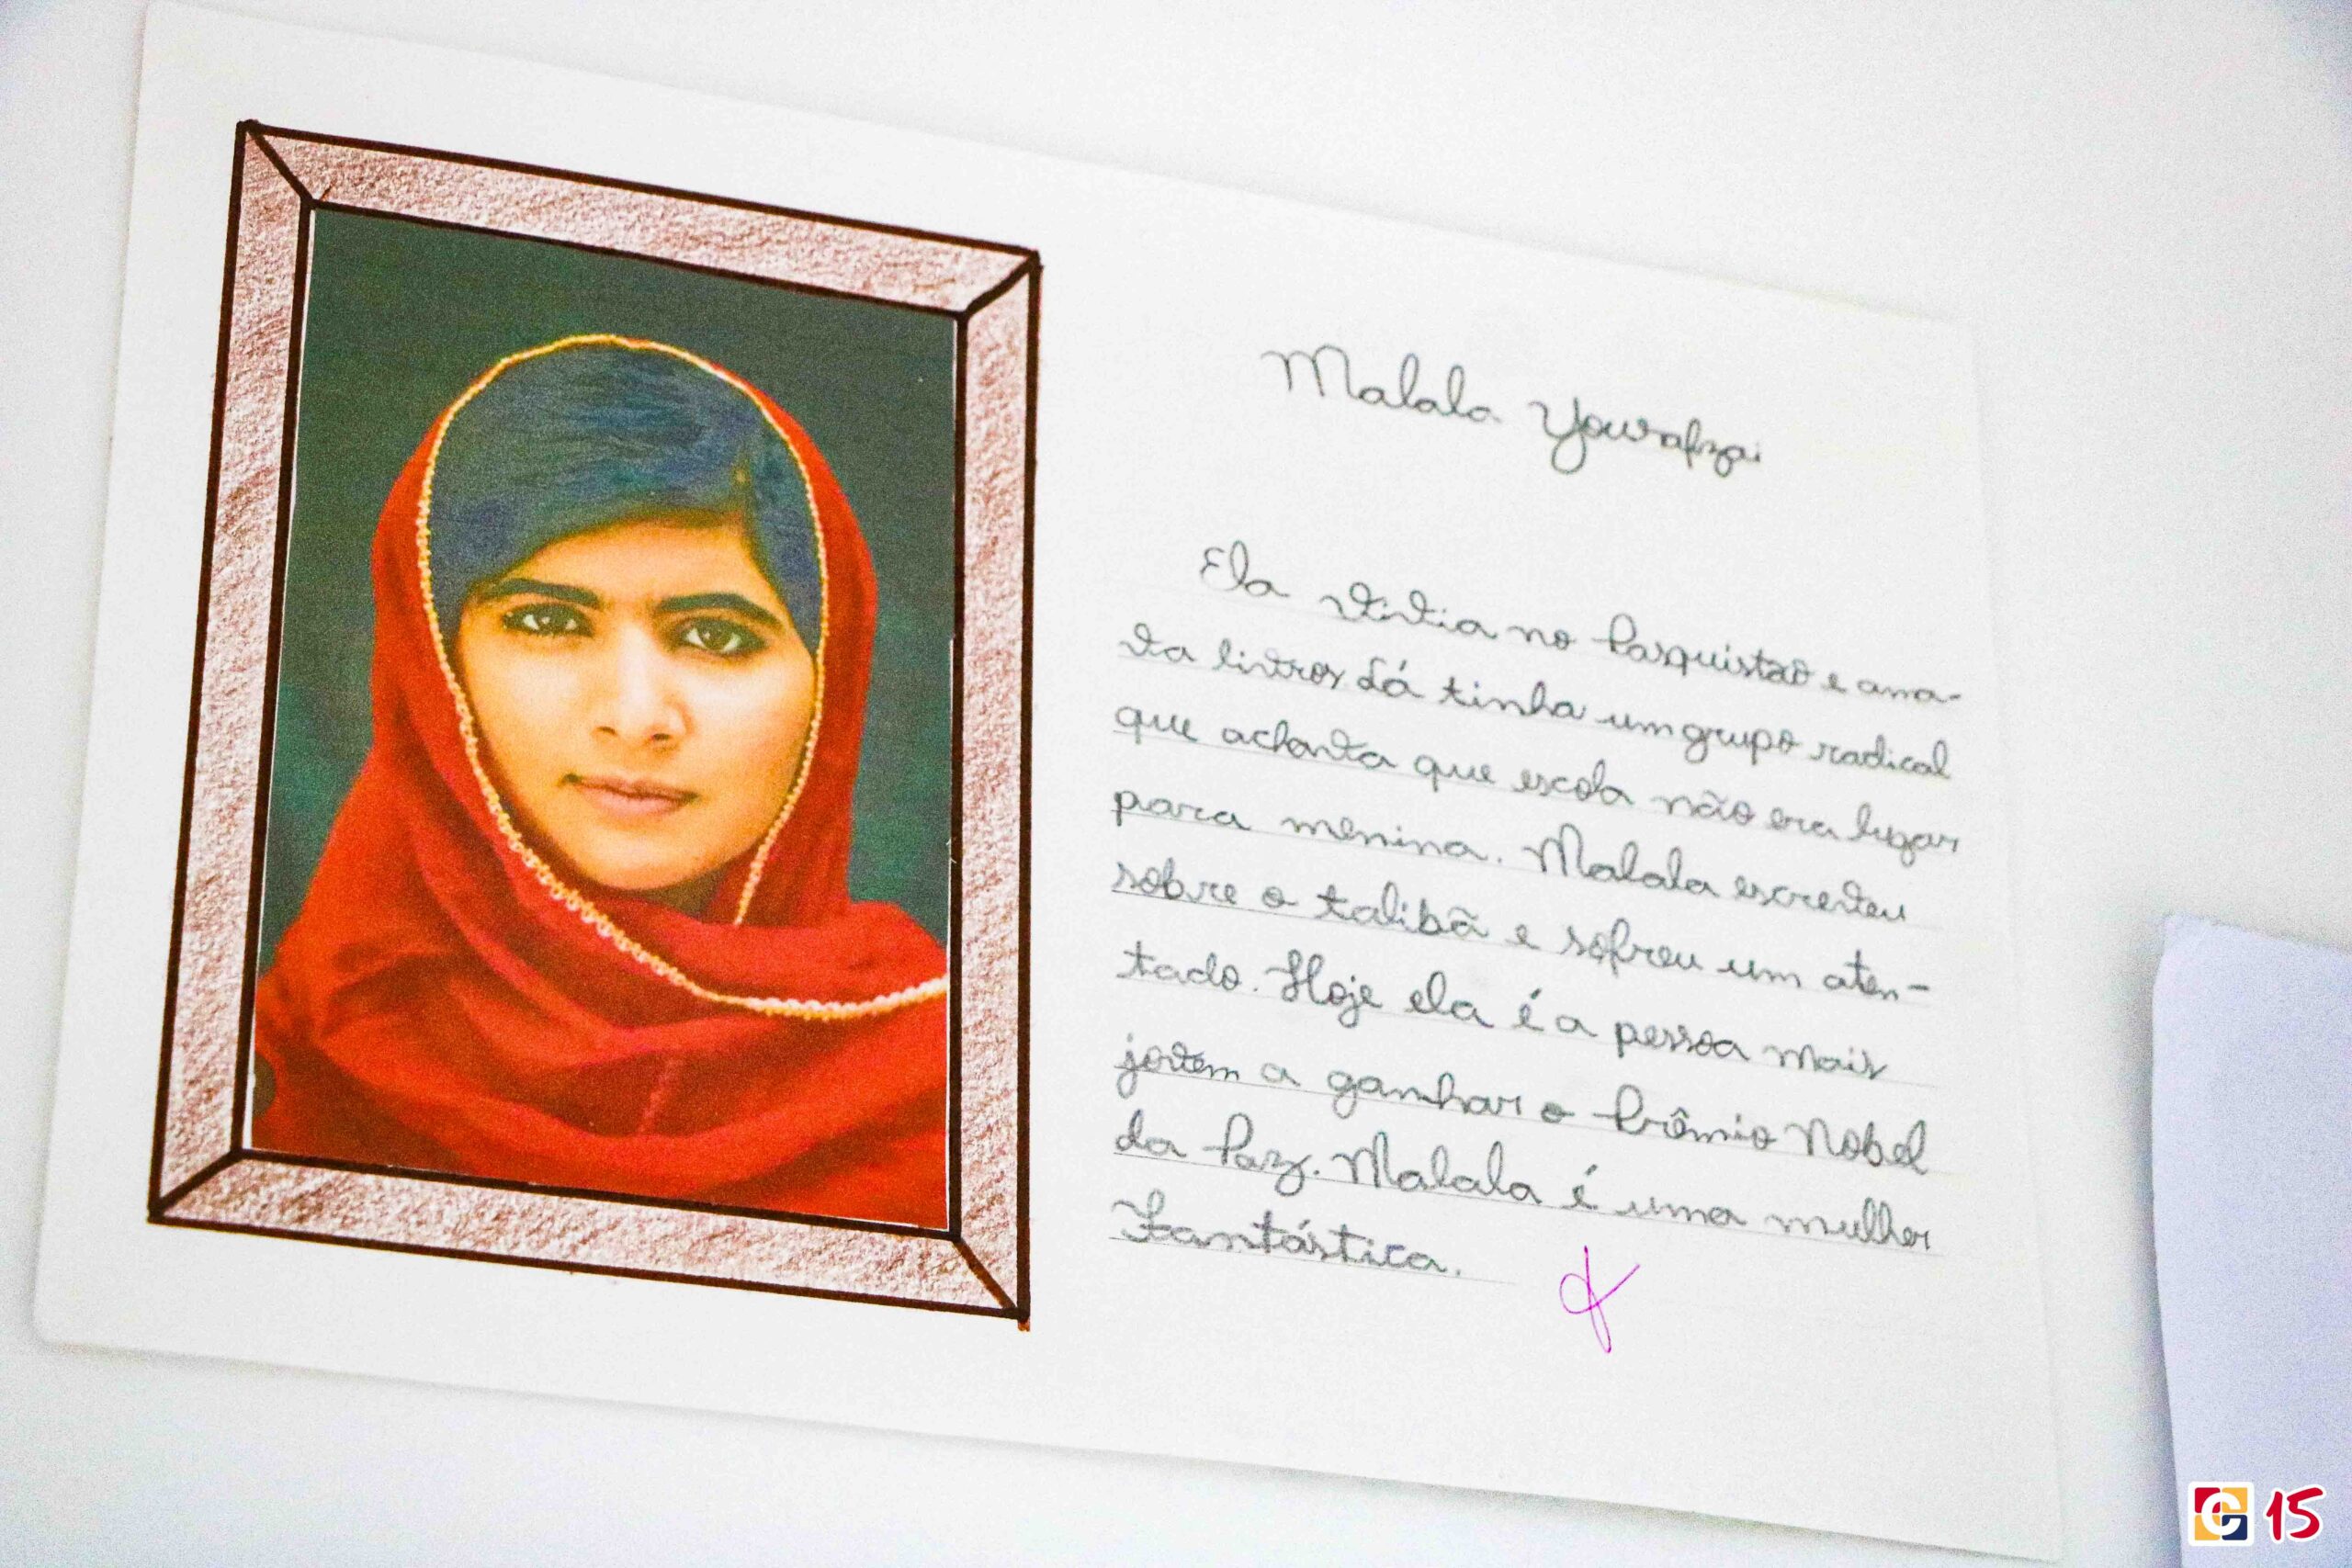 Malala Yousafzai
Ela vivia no Pasquistão e ama-
va livros Lá tinha um grupo radical
que achava que escola não era lugar
para menina. Malala escreveu
sobre o talibã e sofreu um aten-
tado. Hoje ela é a pessoa mais
jovem a ganhar o Prêmio Nobel
da Paz. Malala é uma mulher
Fantástica.
15